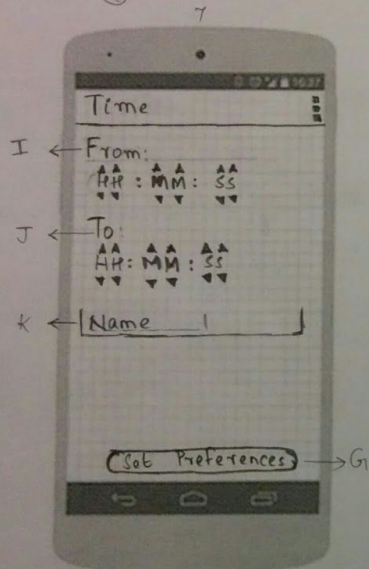 7
16:27
Time
I ← From:
HH : MM : SS
J ← To:
HH : MM : SS
K ← Name
Set Preferences → G